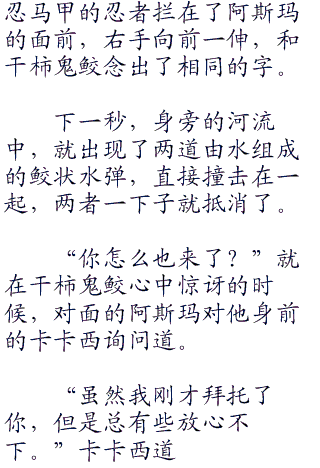 忍马甲的忍者拦在了阿斯玛
的面前，右手向前一伸，和
干柿鬼鲛念出了相同的字。
下一秒，身旁的河流
中，就出现了两道由水组成
的鲛状水弹，直接撞击在一
起，两者一下子就抵消了。
“你怎么也来了？”就
在干柿鬼鲛心中惊讶的时
候，对面的阿斯玛对他身前
的卡卡西询问道。
“虽然我刚才拜托了
你，但是总有些放心不
下。”卡卡西道